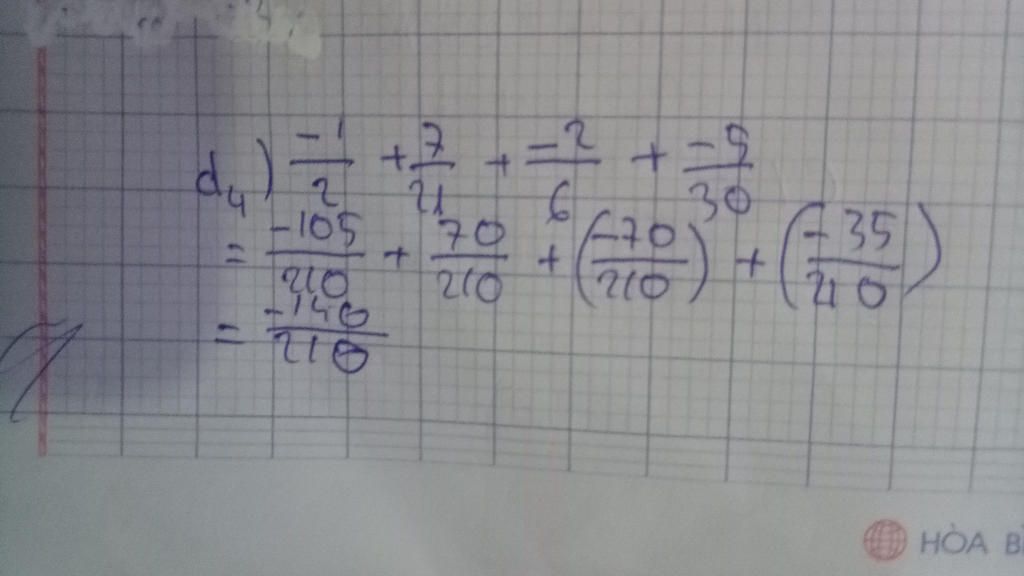 d₄) -1/2 + 7/21 + -2/6 + -5/30
= -105/210 + 70/210 + (-70/210) + (-35/210)
= -140/210
HÒA B